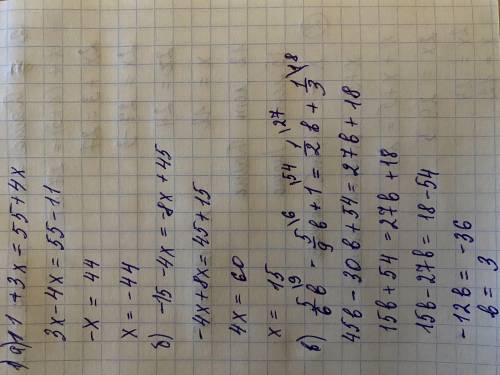 1) а) 11 + 3x = 55 + 4x
3x - 4x = 55 - 11
-x = 44
x = -44
б) -15 - 4x = -8x + 45
-4x + 8x = 45 + 15
4x = 60
x = 15
в) 5/6\9 b - 5/9\6 b + 1\54 = 1/2\27 b + 1/3\18
45b - 30b + 54 = 27b + 18
15b + 54 = 27b + 18
15b - 27b = 18 - 54
-12b = -36
b = 3